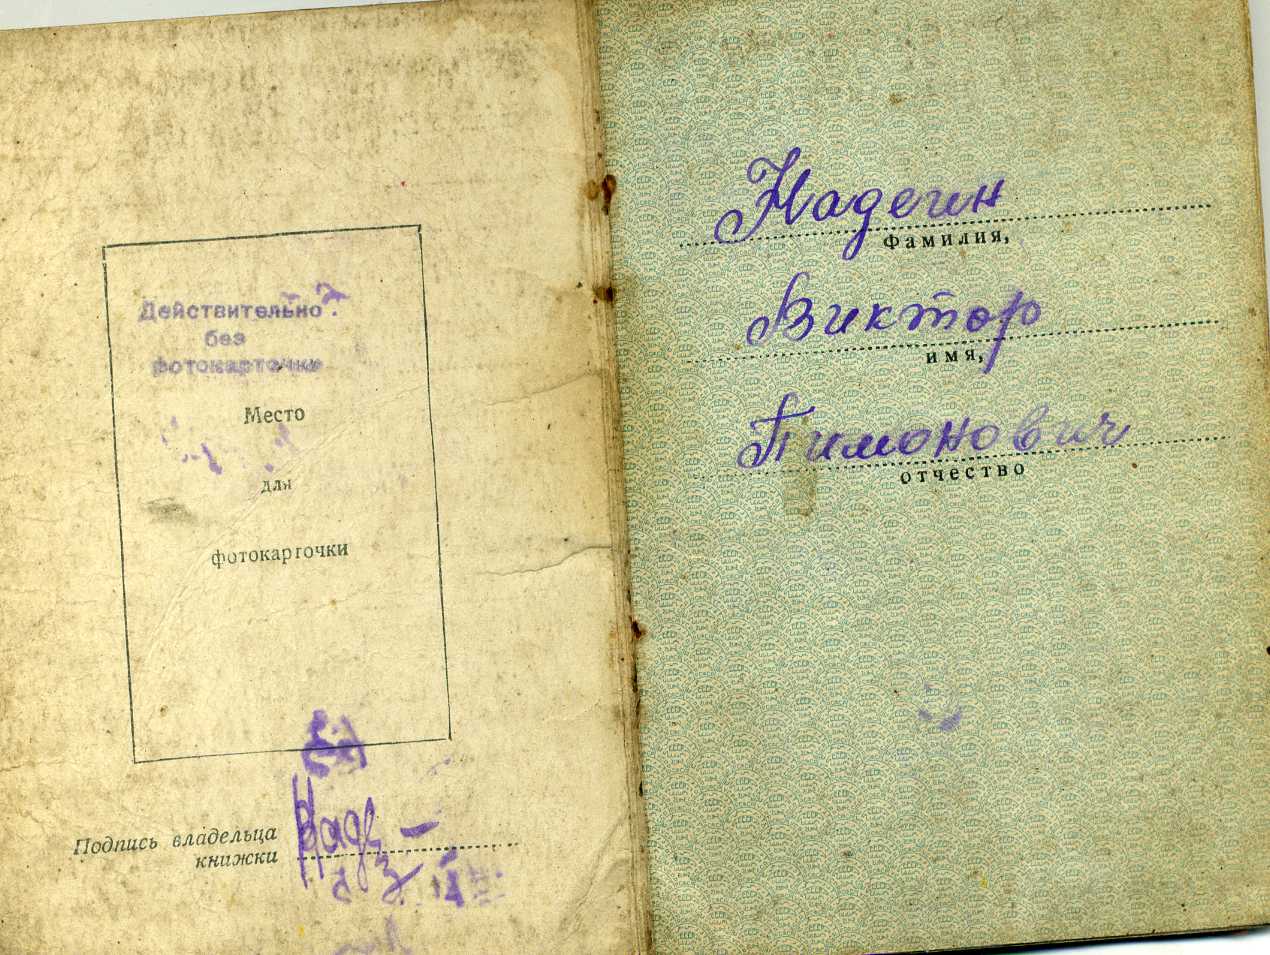 Действительно
без
фотокарточки
Место
для
фотокарточки
Подпись владельца
книжки
Надегин
Фамилия,
Виктор
имя,
Пимонович
отчество